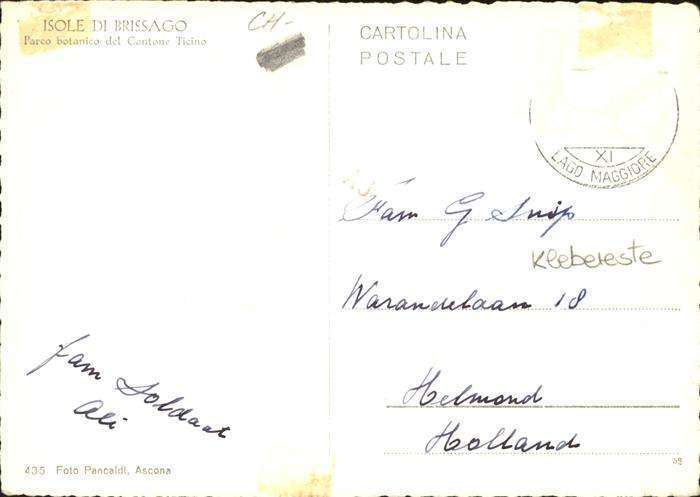 ISOLE DI BRISSAGO
Parco botanico del Cantone Ticino
CH-
CARTOLINA
POSTALE
XI
LAGO MAGGIORE
Fam G Snijp
Klebereste
Warandelaan 18
Helmond
Holland
fam Soldaat
Ali
435 Foto Pancaldi, Ascona